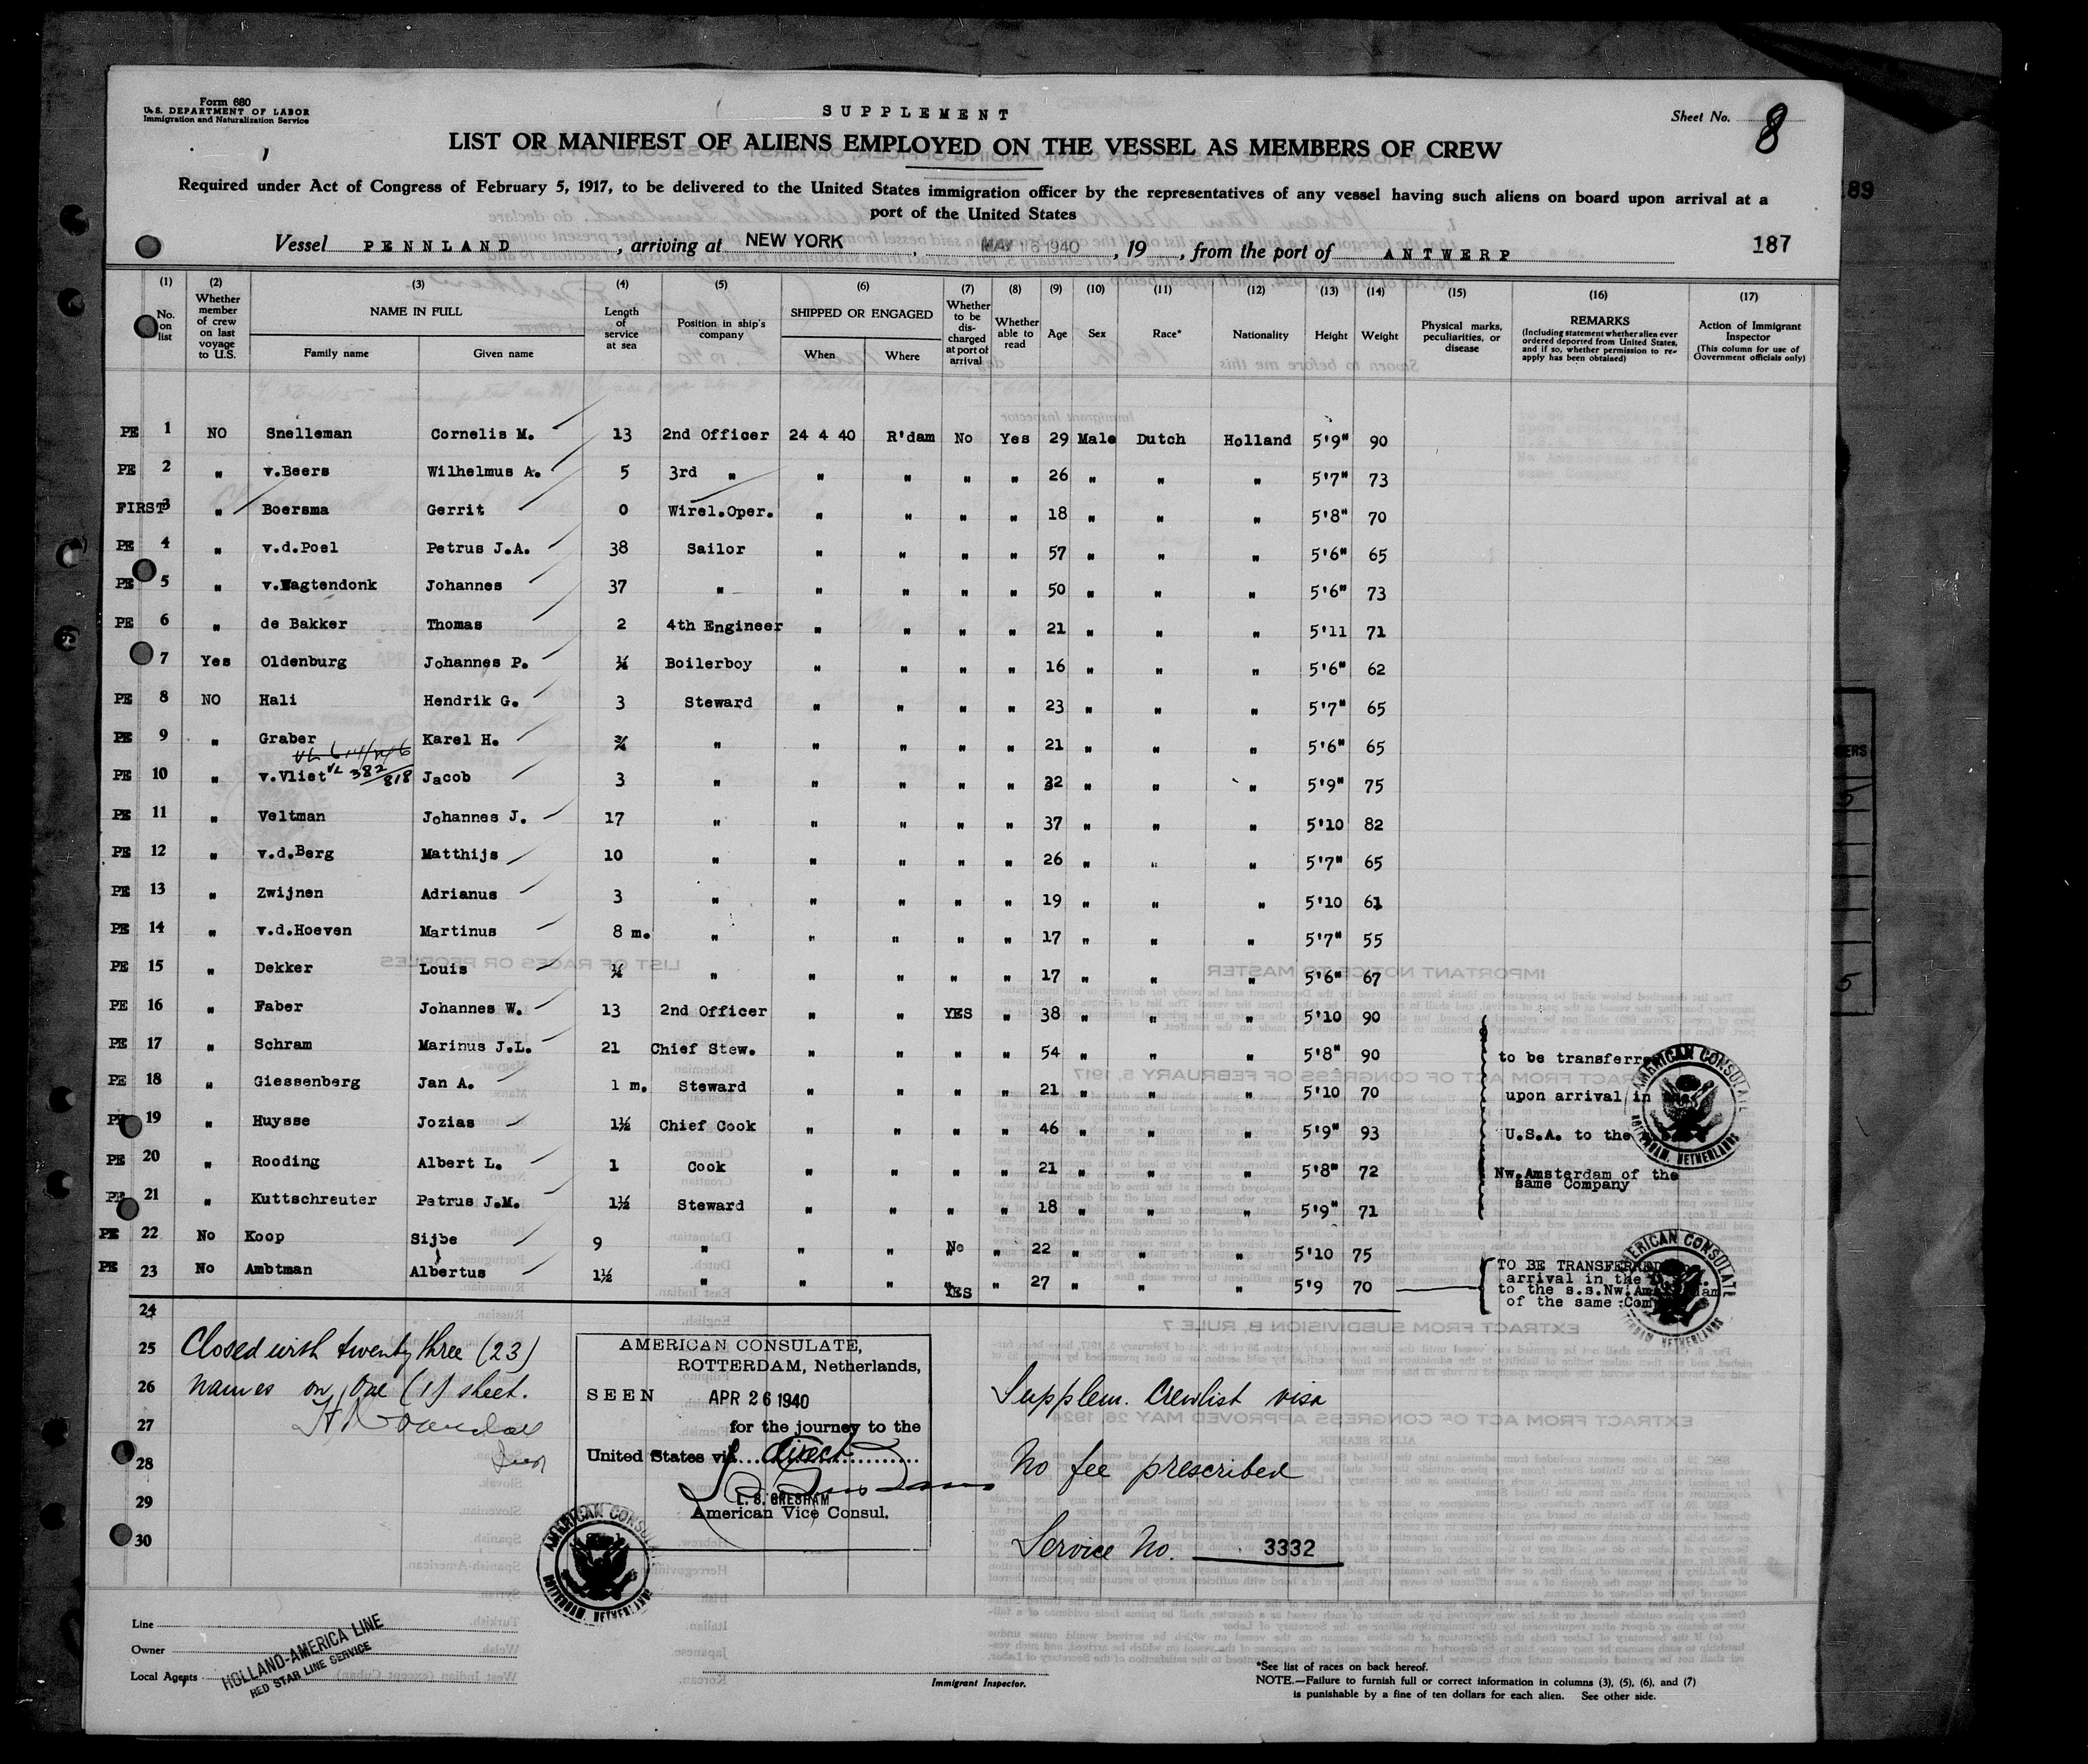 Form 680
U.S. DEPARTMENT OF LABOR
Immigration and Naturalization Service
SUPPLEMENT
Sheet No. 8
LIST OR MANIFEST OF ALIENS EMPLOYED ON THE VESSEL AS MEMBERS OF CREW
Required under Act of Congress of February 5, 1917, to be delivered to the United States immigration officer by the representatives of any vessel having such aliens on board upon arrival at a
port of the United States
89
Vessel PENNLAND, arriving at NEW YORK, MAY 16 1940, 19, from the port of ANTWERP 187
(1) (2) (3) (4) (5) (6) (7) (8) (9) (10) (11) (12) (13) (14) (15) (16) (17)
No. on list
Whether member of crew on last voyage to U.S.
NAME IN FULL
Family name Given name
Length of service at sea
Position in ship's company
SHIPPED OR ENGAGED
When Where
Whether to be discharged at port of arrival
Whether able to read
Age Sex Race* Nationality Height Weight
Physical marks, peculiarities, or disease
REMARKS
(Including statement whether alien ever ordered deported from United States, and if so, whether permission to reapply has been obtained)
Action of Immigrant Inspector
(This column for use of Government officials only)
PE 1 NO Snelleman Cornelis M. 13 2nd Officer 24 4 40 R'dam No Yes 29 Male Dutch Holland 5'9" 90
PE 2 " v.Beers Wilhelmus A. 5 3rd " " " " " 26 " " " 5'7" 73
FIRST 3 " Boersma Gerrit 0 Wirel.Oper. " " " " 18 " " " 5'8" 70
PE 4 " v.d.Poel Petrus J.A. 38 Sailor " " " " 57 " " " 5'6" 65
PE 5 " v.Wagtendonk Johannes 37 " " " " " 50 " " " 5'6" 73
PE 6 " de Bakker Thomas 2 4th Engineer " " " " 21 " " " 5'11 71
7 Yes Oldenburg Johannes P. Boilerboy " " " " 16 " " " 5'6" 62
PE 8 NO Hali Hendrik G. 3 Steward " " " " 23 " " " 5'7" 65
PE 9 " Graber Karel H. ¾ " " " " " 21 " " " 5'6" 65
PE 10 " v.Vliet 382/818 Jacob 3 " " " " " 32 " " " 5'9" 75
PE 11 " Veltman Johannes J. 17 " " " " " 37 " " " 5'10 82
PE 12 " v.d.Berg Matthijs 10 " " " " " 26 " " " 5'7" 65
PE 13 " Zwijnen Adrianus 3 " " " " " 19 " " " 5'10 61
PE 14 " v.d.Hoeven Martinus 8 m. " " " " " 17 " " " 5'7" 55
PE 15 " Dekker Louis " " " " " 17 " " " 5'6" 67
PE 16 " Faber Johannes W. 13 2nd Officer " " YES " 38 " " " 5'10 90
PE 17 " Schram Marinus J.L. 21 Chief Stew. " " " " 54 " " " 5'8" 90
PE 18 " Giessenberg Jan A. 1 m. Steward " " " " 21 " " " 5'10 70
PE 19 " Huysse Jozias 1½ Chief Cook " " " " 46 " " " 5'9" 93
PE 20 " Rooding Albert L. 1 Cook " " " " 21 " " " 5'8" 72
PE 21 " Kuttschreuter Petrus J.M. 1½ Steward " " " " 18 " " " 5'9" 71
to be transferred
upon arrival in
U.S.A. to the
Nw.Amsterdam of the
same Company
PE 22 No Koop Sijbe 9 " " " No " 22 " " " 5'10 75
PE 23 No Ambtman Albertus 1½ " " " YES " 27 " " " 5'9 70
TO BE TRANSFERRED
arrival in the
to the s.s.Nw.Amsterdam
of the same Company
24
25
26
27
28
29
30
Closed with twenty three (23)
names on One (1) sheet.
AMERICAN CONSULATE,
ROTTERDAM, Netherlands,
SEEN APR 26 1940
for the journey to the
United States via direct
L. S. GRESHAM
American Vice Consul.
Supplem. Crewlist visa
No fee prescribed
Service No. 3332
AMERICAN CONSULATE
ROTTERDAM, NETHERLANDS
AMERICAN CONSULATE
ROTTERDAM, NETHERLANDS
AMERICAN CONSULATE
ROTTERDAM, NETHERLANDS
Line
Owner
Local Agents
HOLLAND-AMERICA LINE
RED STAR LINE SERVICE
Immigrant Inspector.
*See list of races on back hereof.
NOTE.—Failure to furnish full or correct information in columns (3), (5), (6), and (7)
is punishable by a fine of ten dollars for each alien. See other side.